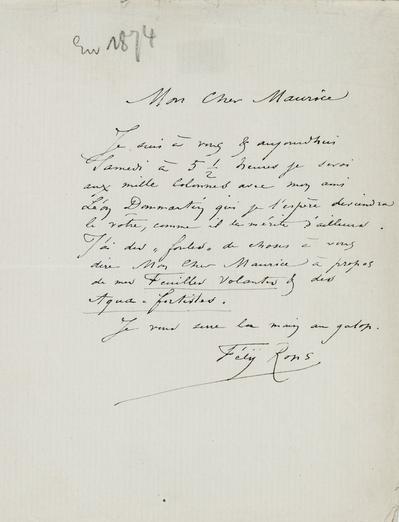 Env 1874
Mon Cher Maurice
Je suis à vous & aujourdhui
Samedi à 5 1/2 heures je serai
aux mille colonnes avec mon ami
Léon Dommartin qui je l'espère deviendra
le vôtre, comme il le mérite d'ailleurs.
J'ai des « foules » de choses à vous
dire Mon Cher Maurice à propos
de mes Feuilles Volantes & des
Aqua-fortistes.
Je vous serre la main au galop.
Fély Rops